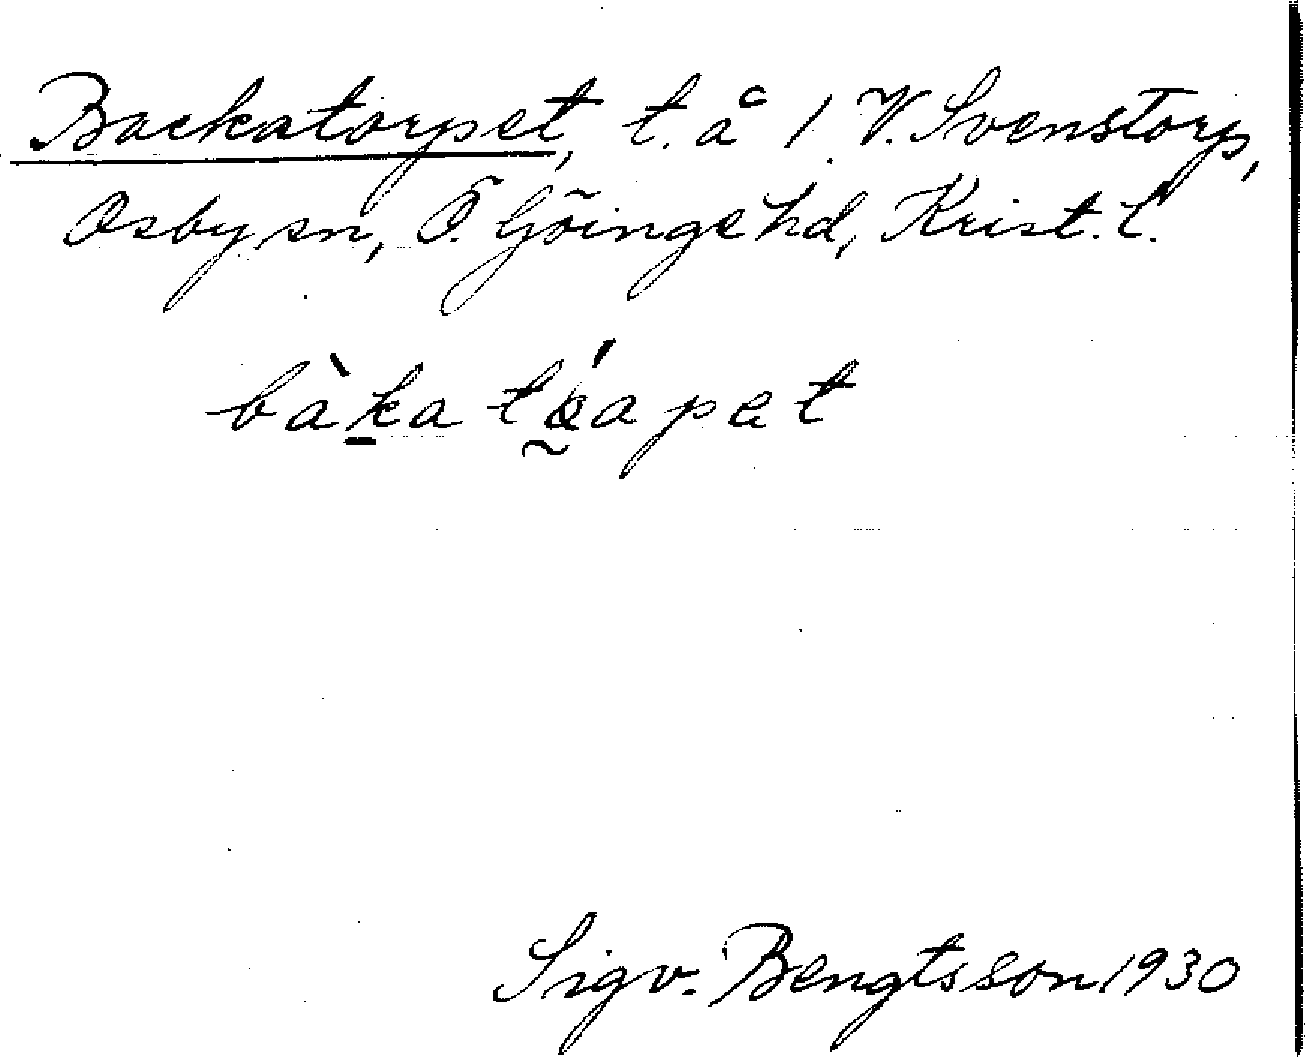 Backatorpet, t. å 1 V. Svenstorp,
Osby sn, Ö. Göinge hd, Krist. l.
Sigv. Bengtsson 1930